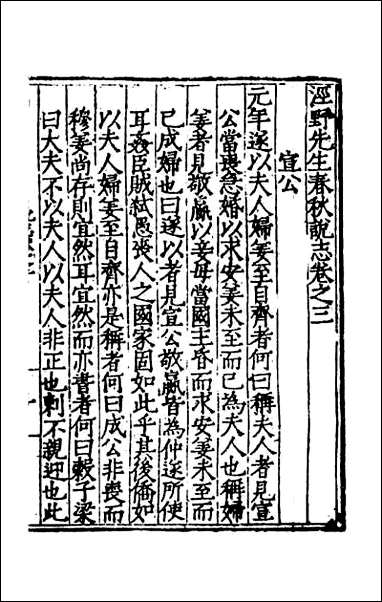 涇野先生春秋說志卷之三
宣公
元年遂以夫人婦姜至自齊者何曰稱夫人者見宣
公當喪急婚以求安姜未至而已為夫人也稱婦
姜者見敬嬴以妾母當國主昏而求安姜未至而
已成婦也曰遂以者見宣公敬嬴皆為仲遂所使
耳姦臣賊弒愚喪人之國家固如此乎其後僑如
以夫人婦姜至自齊亦是稱者何曰成公非喪而
穆姜尚存則宜然耳宜然而亦書者何曰穀子梁
曰大夫不以夫人以夫人非正也刺不親迎也此